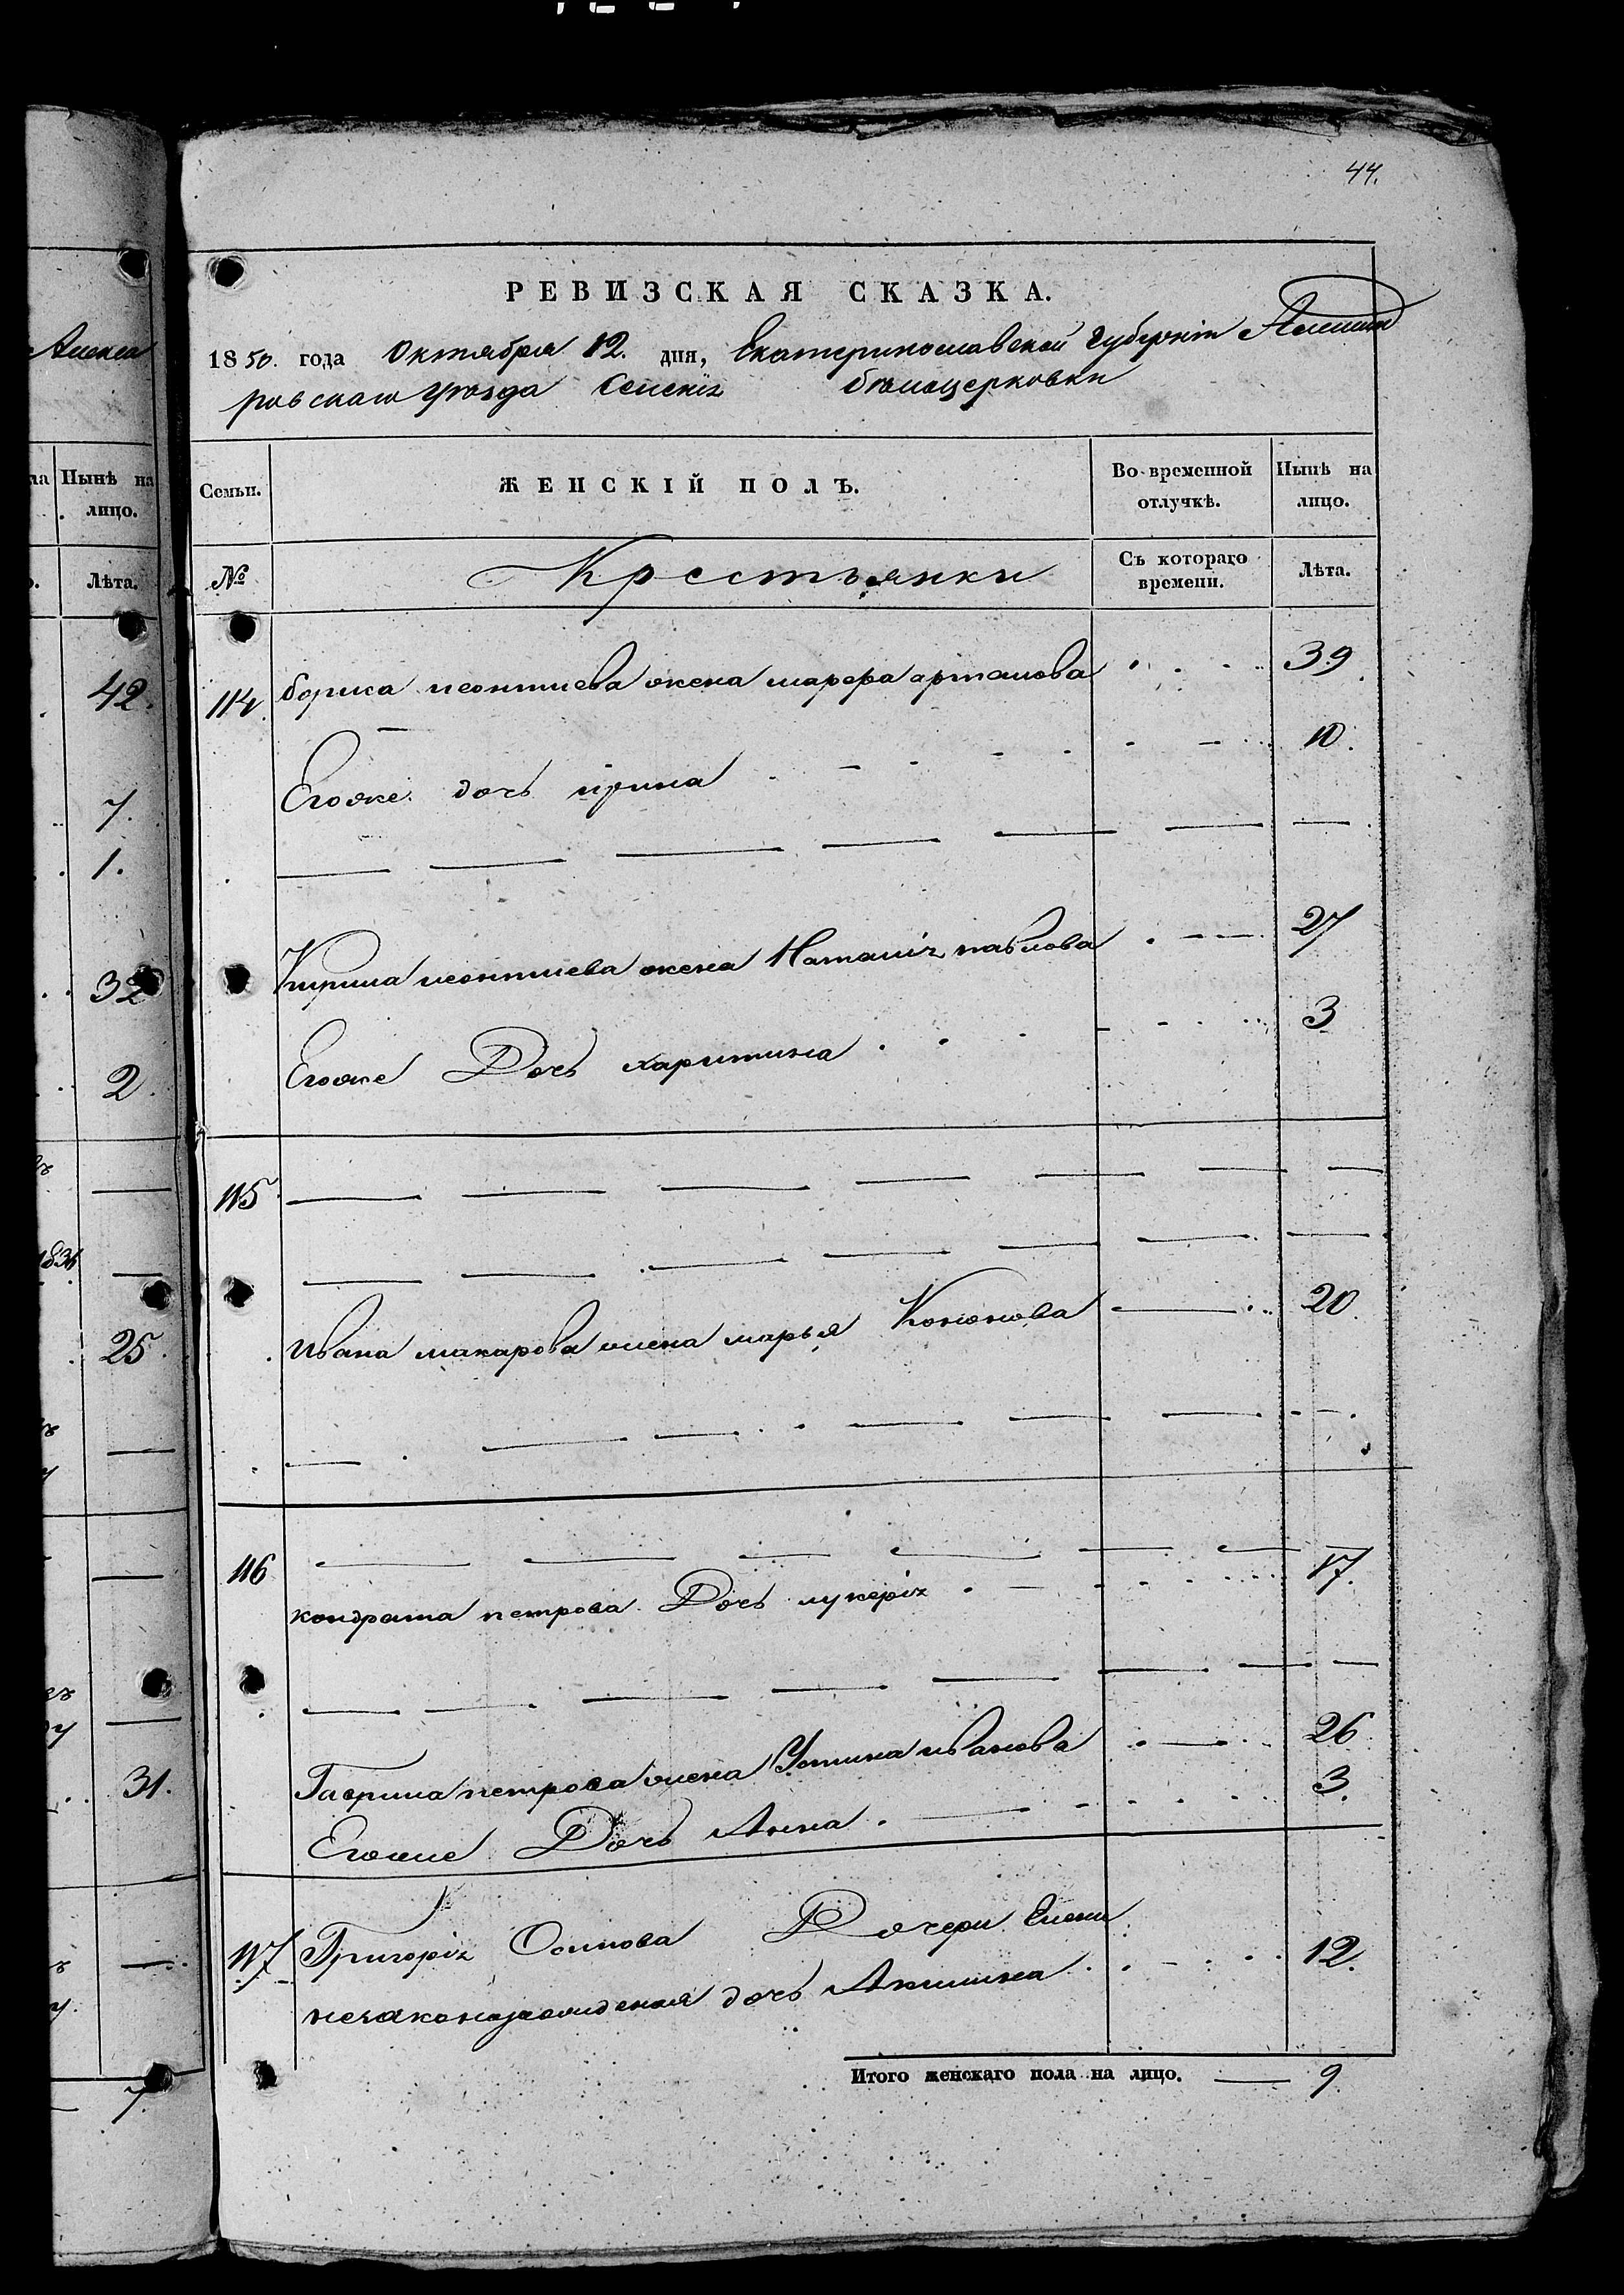 44.
РЕВИЗСКАЯ СКАЗКА.
1850. года Октября 12. дня, Екатеринославской Губерніи Александ
ровскаго уѣзда Селенія бѣлоцерковки
Алекса
Нынѣ на лицо.
Лѣта.
42.
7.
1.
32
2.
1831
25.
31.
7.
Семьи. ЖЕНСКІЙ ПОЛЪ. Во временной отлучкѣ. Нынѣ на лицо.
№ Крестьянки Съ котораго времени. Лѣта.
114 бориса леонтиева жена марфа артамова 39
Егоже дочь ирина 10.
Кирила леонтиева жена Наталія павлова 27
Егоже Дочь харитина 3
115
ивана макарова жена марья Кононова 20
116
кондрата петрова Дочь лукерія 17.
Гаврила петрова жена Устина иванова 26
Егоже Дочь Анна. 3.
117 Григорія Осипова Дочери Елены
незаконорожденая дочь Акилина 12.
Итого женскаго пола на лицо. 9